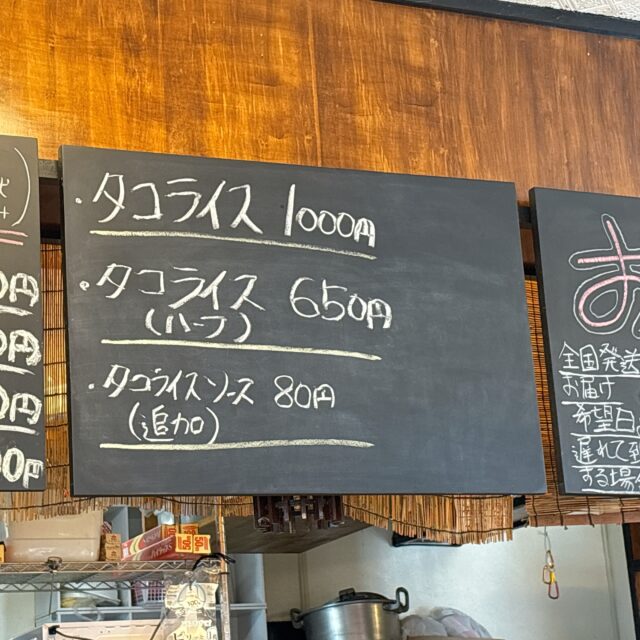 ・タコライス 1000円
・タコライス 650円
(ハーフ)
・タコライスソース 80円
(追加)
0円
0円
0円
00円
お
全国発送
お届け
希望日
遅れて到
する場合